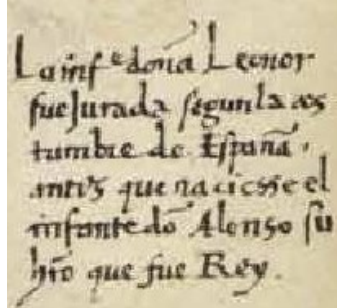 La infᵉ doña Leonor
fue Jurada segun la cos
tumbre de España.
antes que naciesse el
infante dō Alonso su
hr̄o que fue Rey.